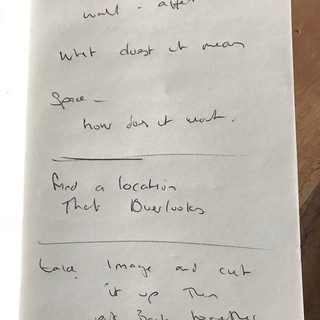 wall - affe
What does it mean
Space -
how does it work.
find a location
That Overlooks
take Image and cut
it up Then
put Back together